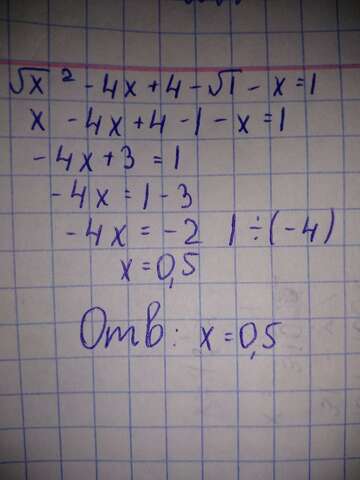 √x² - 4x + 4 - √1 - x = 1
x - 4x + 4 - 1 - x = 1
- 4x + 3 = 1
- 4x = 1 - 3
- 4x = - 2 | ÷ (- 4)
x = 0,5
Отв: x = 0,5